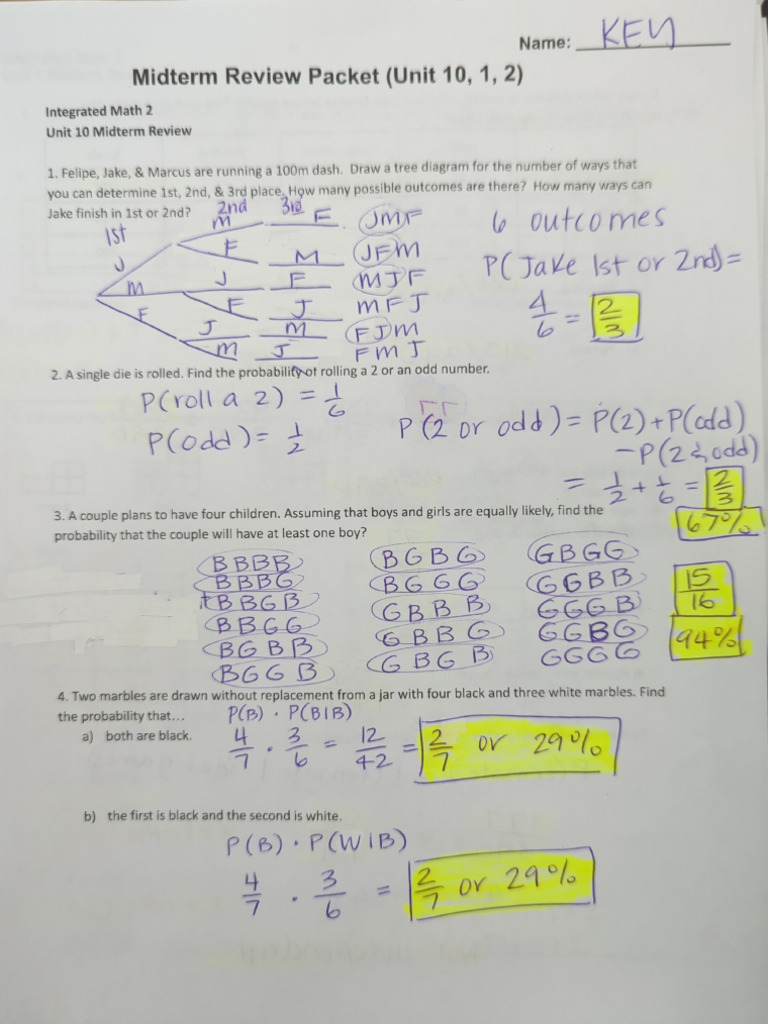 Name: KEY
Midterm Review Packet (Unit 10, 1, 2)
Integrated Math 2
Unit 10 Midterm Review
1. Felipe, Jake, & Marcus are running a 100m dash. Draw a tree diagram for the number of ways that
you can determine 1st, 2nd, & 3rd place. How many possible outcomes are there? How many ways can
Jake finish in 1st or 2nd?
1st 2nd 3rd
J M F JMF
F M JFM
M J F MJF
F J MFJ
F J M FJM
M J FMJ
6 outcomes
P(Jake 1st or 2nd) =
4/6 = 2/3
2. A single die is rolled. Find the probability of rolling a 2 or an odd number.
P(roll a 2) = 1/6
P(odd) = 1/2
P(2 or odd) = P(2) + P(odd)
- P(2 & odd)
= 1/2 + 1/6 = 2/3
67%
3. A couple plans to have four children. Assuming that boys and girls are equally likely, find the
probability that the couple will have at least one boy?
BBBB
BBBG
BBGB
BBGG
BGBB
BGGB
BGBG
BGGG
GBBB
GBBG
GBGB
GBGG
GGBB
GGGB
GGBG
GGGG
15/16
94%
4. Two marbles are drawn without replacement from a jar with four black and three white marbles. Find
the probability that...
P(B) · P(B|B)
a) both are black.
4/7 · 3/6 = 12/42 = 2/7 or 29%
b) the first is black and the second is white.
P(B) · P(W|B)
4/7 · 3/6 = 2/7 or 29%